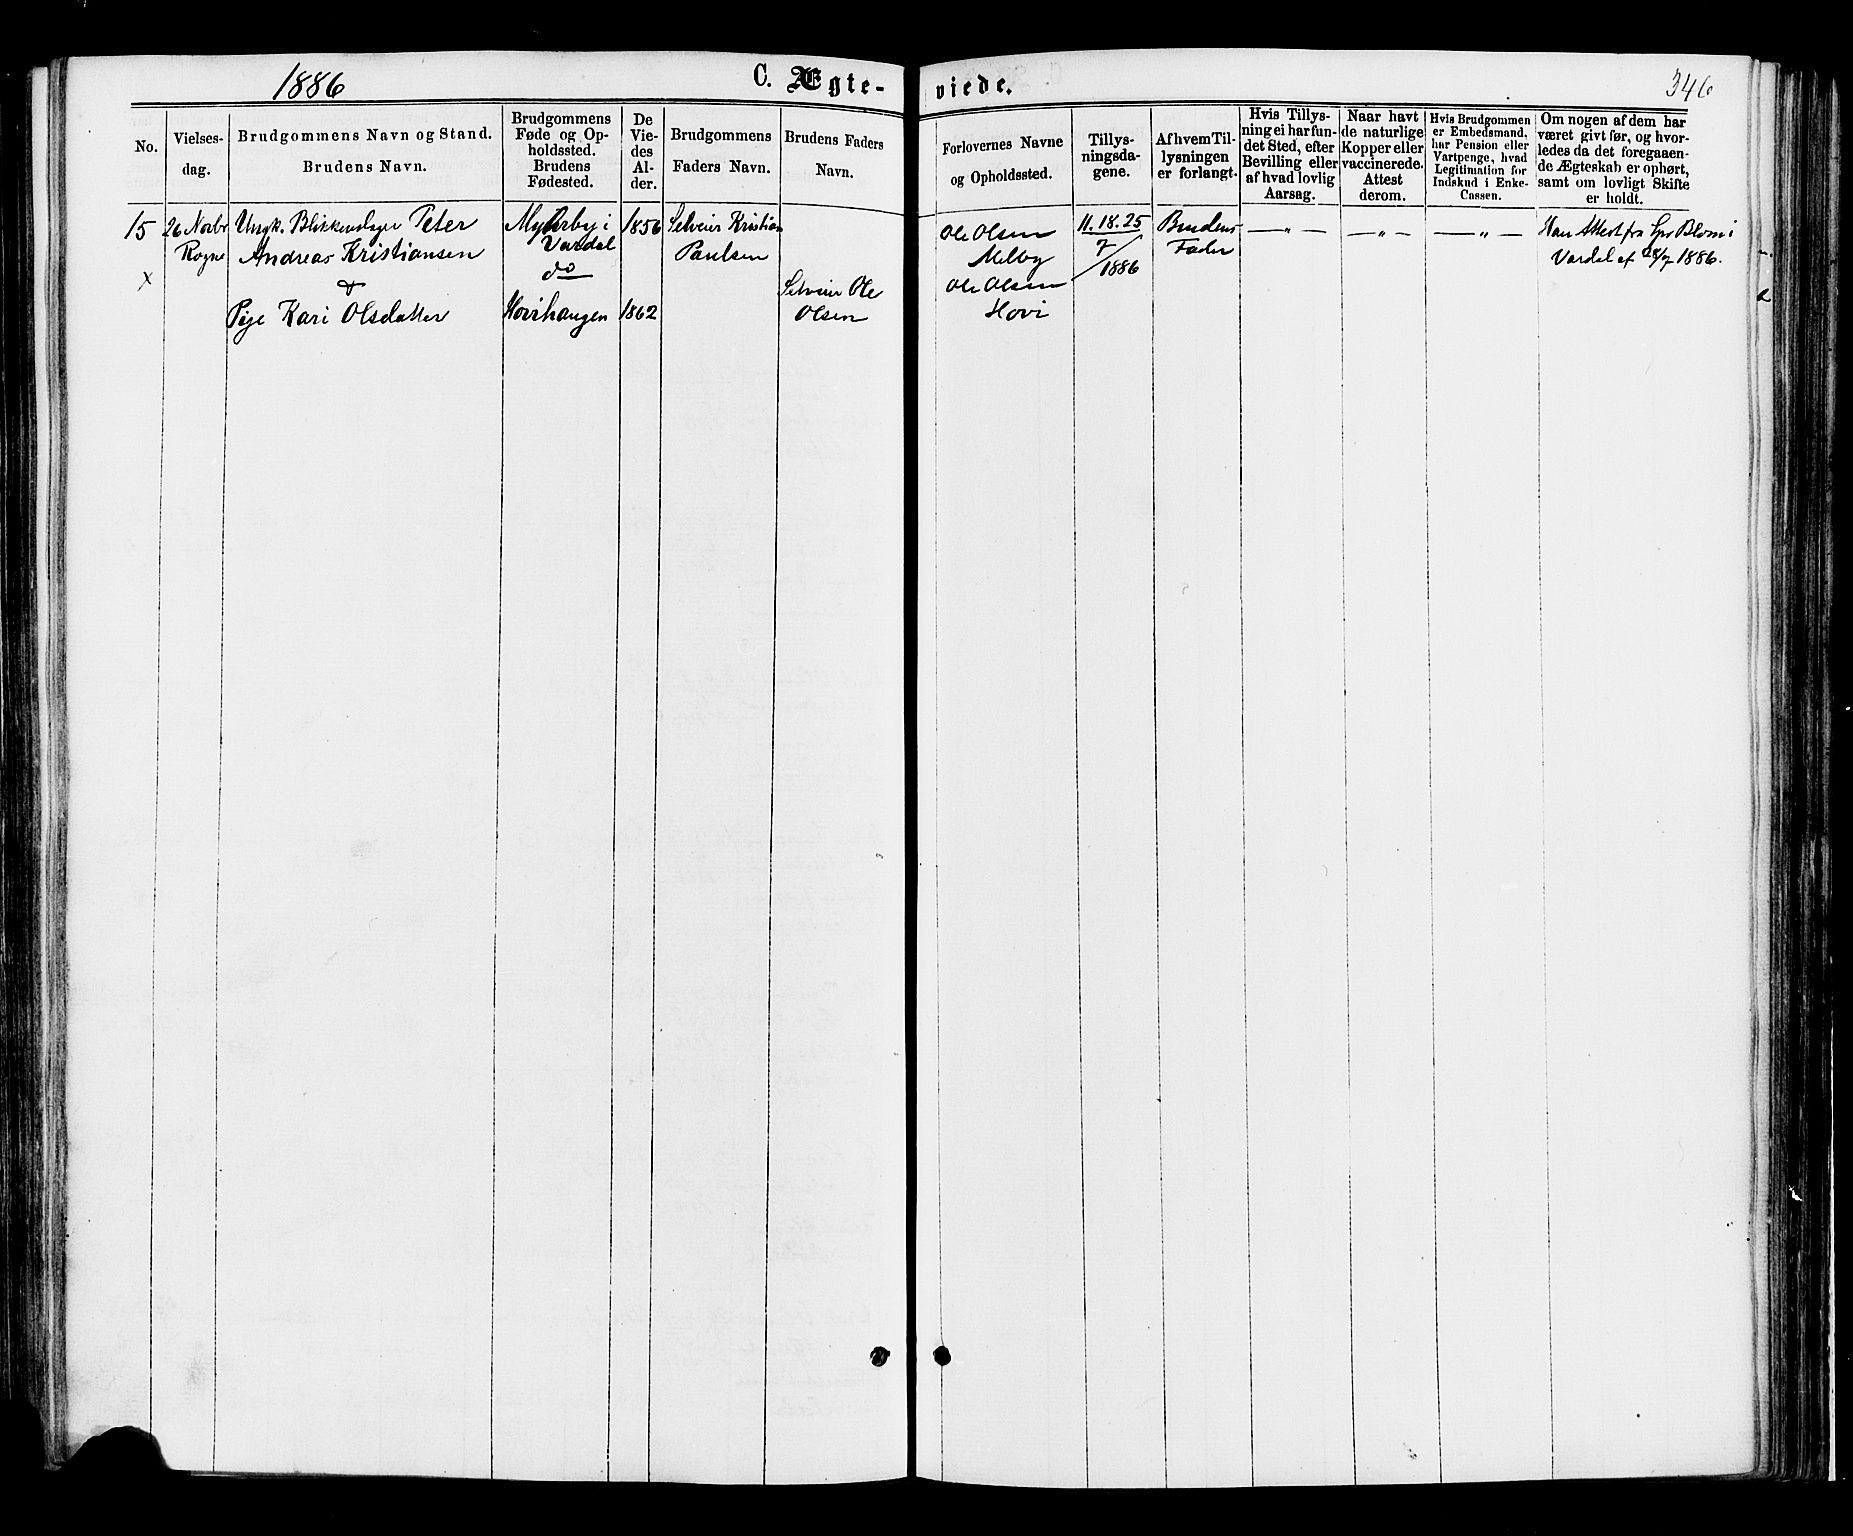 1886
C. Ægte-
viede.
346
No.
Vielses-
dag.
Brudgommens Navn og Stand.
Brudens Navn.
Brudgommens
Føde og Op-
holdssted.
Brudens
Fødested.
De
Vie-
des
Al-
der.
Brudgommens
Faders Navn.
Brudens Faders
Navn.
Forlovernes Navne
og Opholdssted.
Tillys-
ningsda-
gene.
Af hvem Til-
lysningen
er forlangt.
Hvis Tillys-
ning ei har fun-
det Sted, efter
Bevilling eller
af hvad lovlig
Aarsag.
Naar havt
de naturlige
Kopper eller
vaccinerede.
Attest
derom.
Hvis Brudgommen
er Embedsmand,
har Pension eller
Vartpenge, hvad
Legitimation for
Indskud i Enke-
Cassen.
Om nogen af dem har
været givt før, og hvor-
ledes da det foregaaen-
de Ægteskab er ophørt,
samt om lovligt Skifte
er holdt.
15
x
26 Novbr
Rogne
Ungk. Blikkenslager Peter
Andreas Kristiansen
&
Pige Kari Olsdatter
i
Vardal
do
Hovihaugen
1856
1862
Selveier Kristian
Paulsen
Selveier Ole
Olsen
Ole Olsen
Melby
Ole Olsen
Hovi
11. 18. 25
7
/1886
Brudens
Fader
— „ —
— „ —
— „ —
Han Attest fra Spr Blom i
Vardal af 28/7 1886.